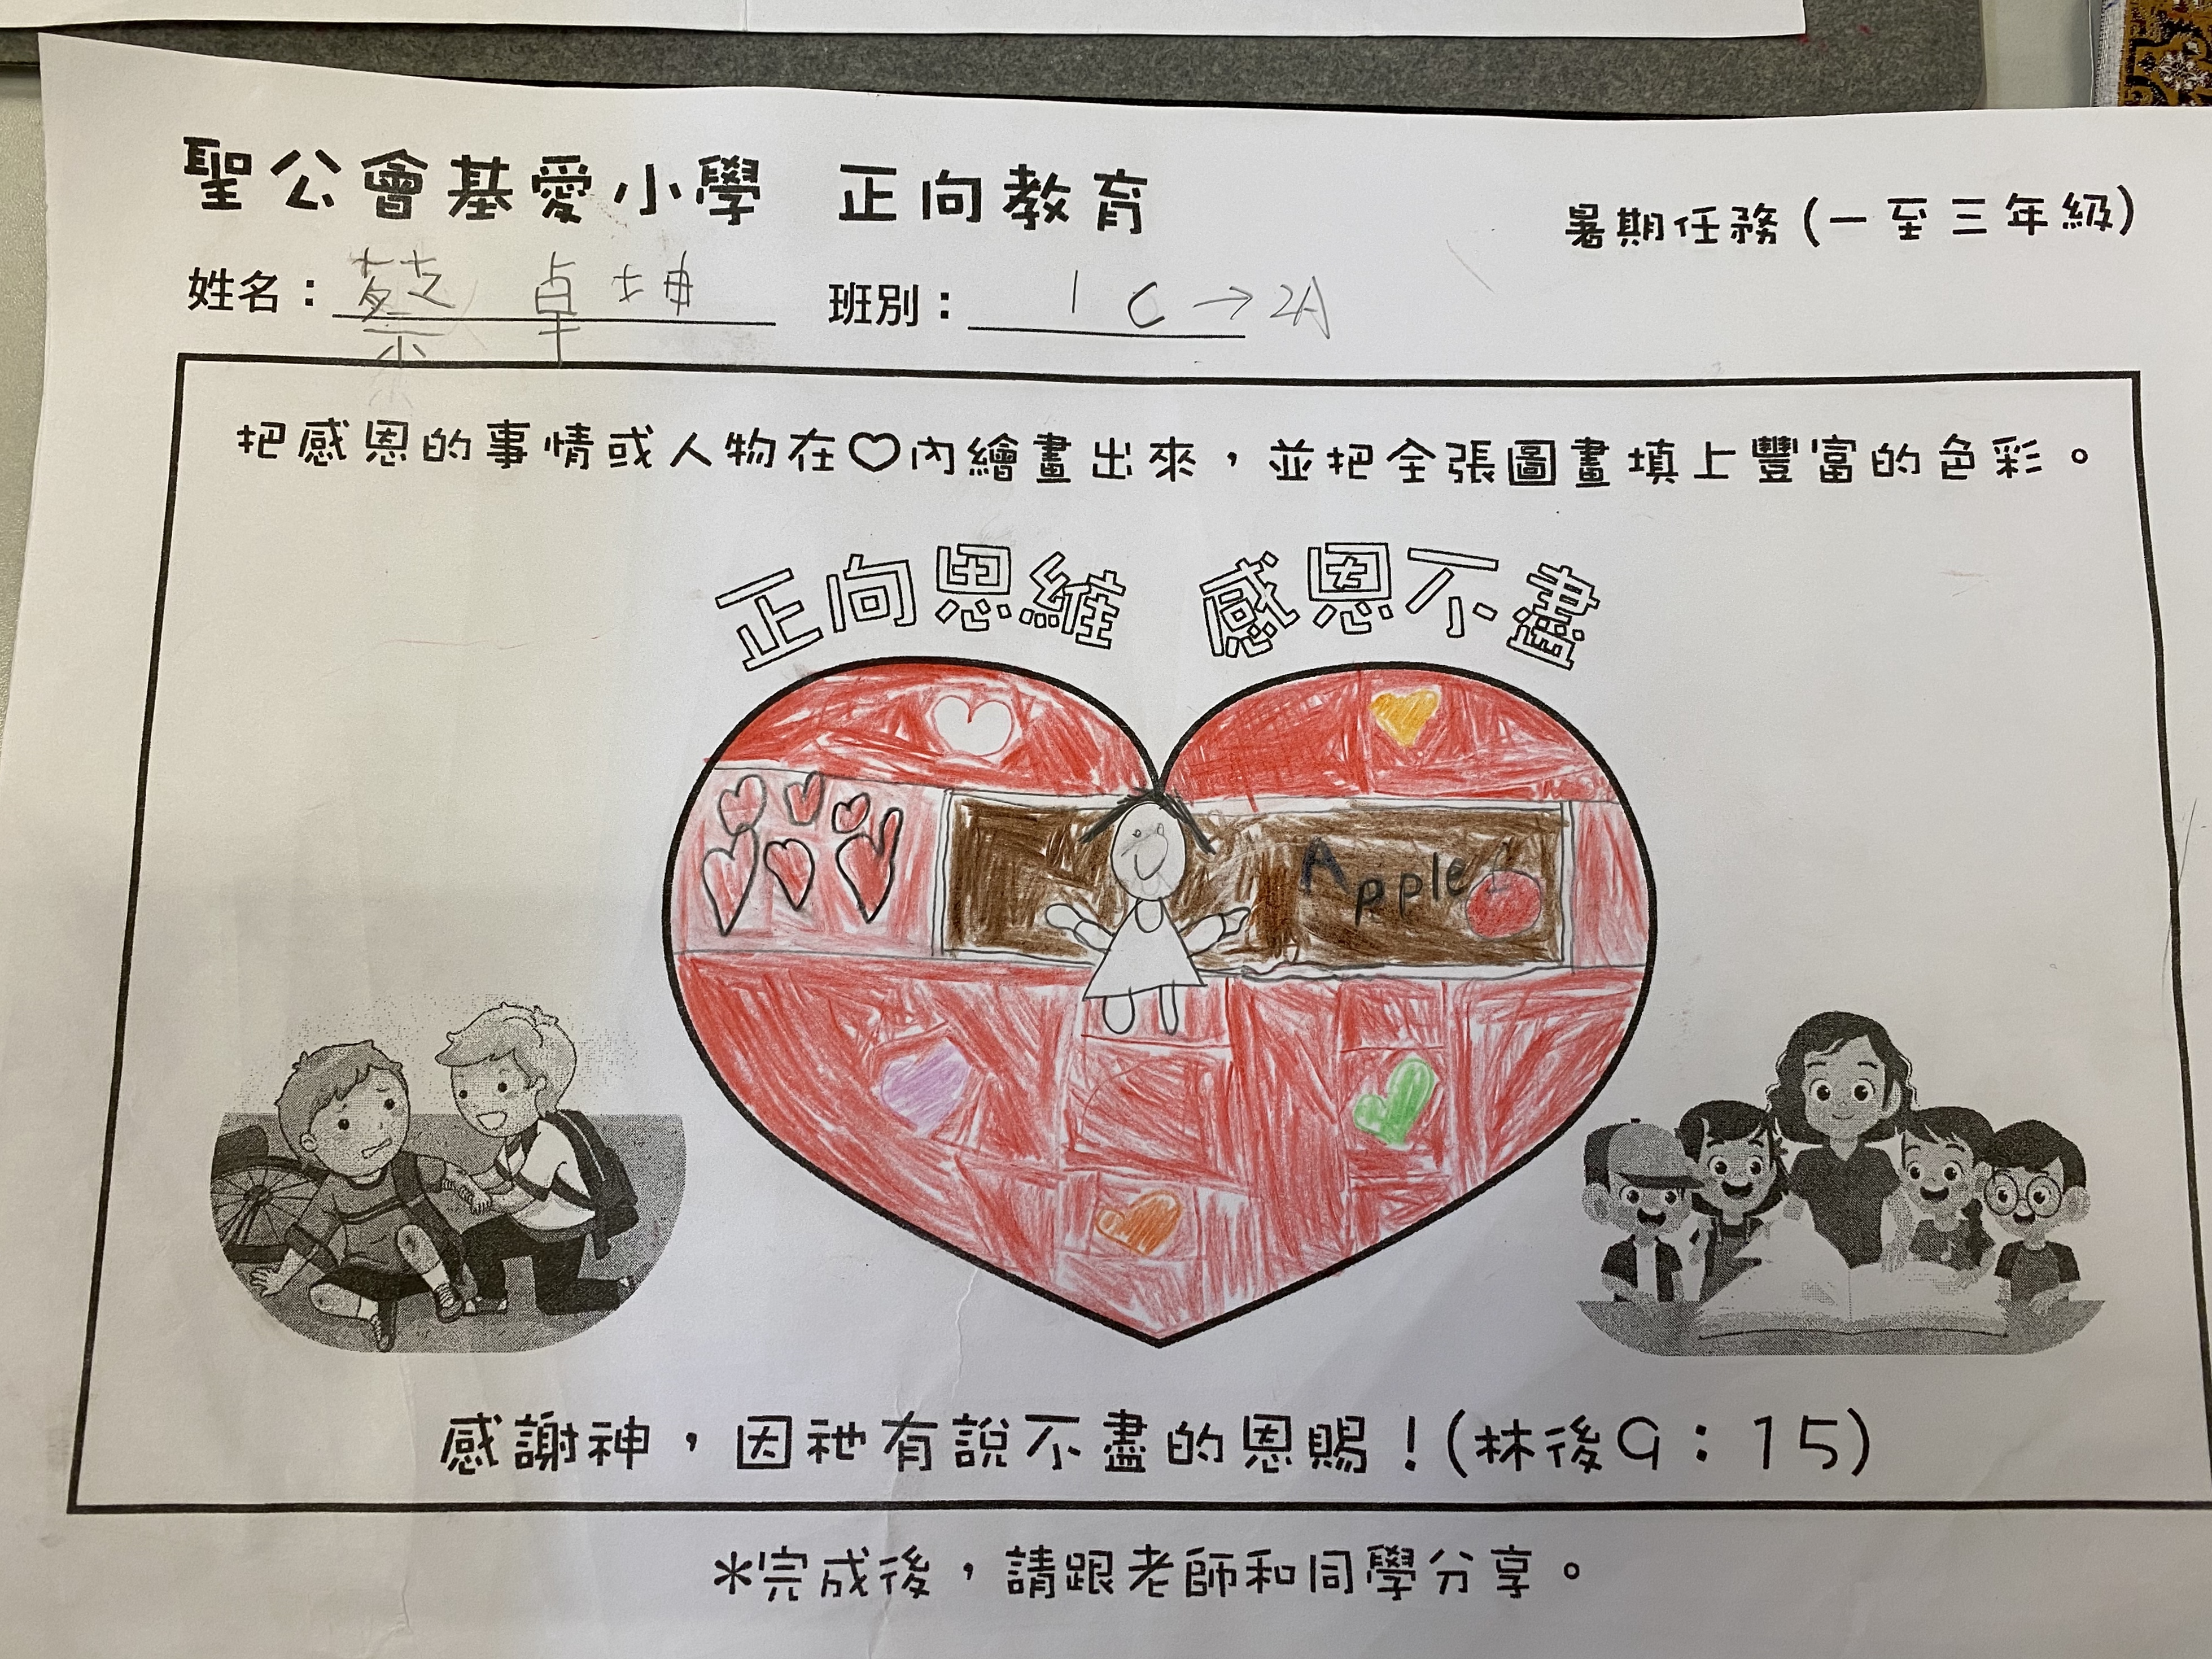 聖公會基愛小學 正向教育
暑期任務(一至三年級)
姓名：蔡卓坤 班別：1C→2A
把感恩的事情或人物在♡內繪畫出來，並把全張圖畫填上豐富的色彩。
正向思維 感恩不盡
Apple
感謝神，因祂有說不盡的恩賜！(林後9：15)
*完成後，請跟老師和同學分享。